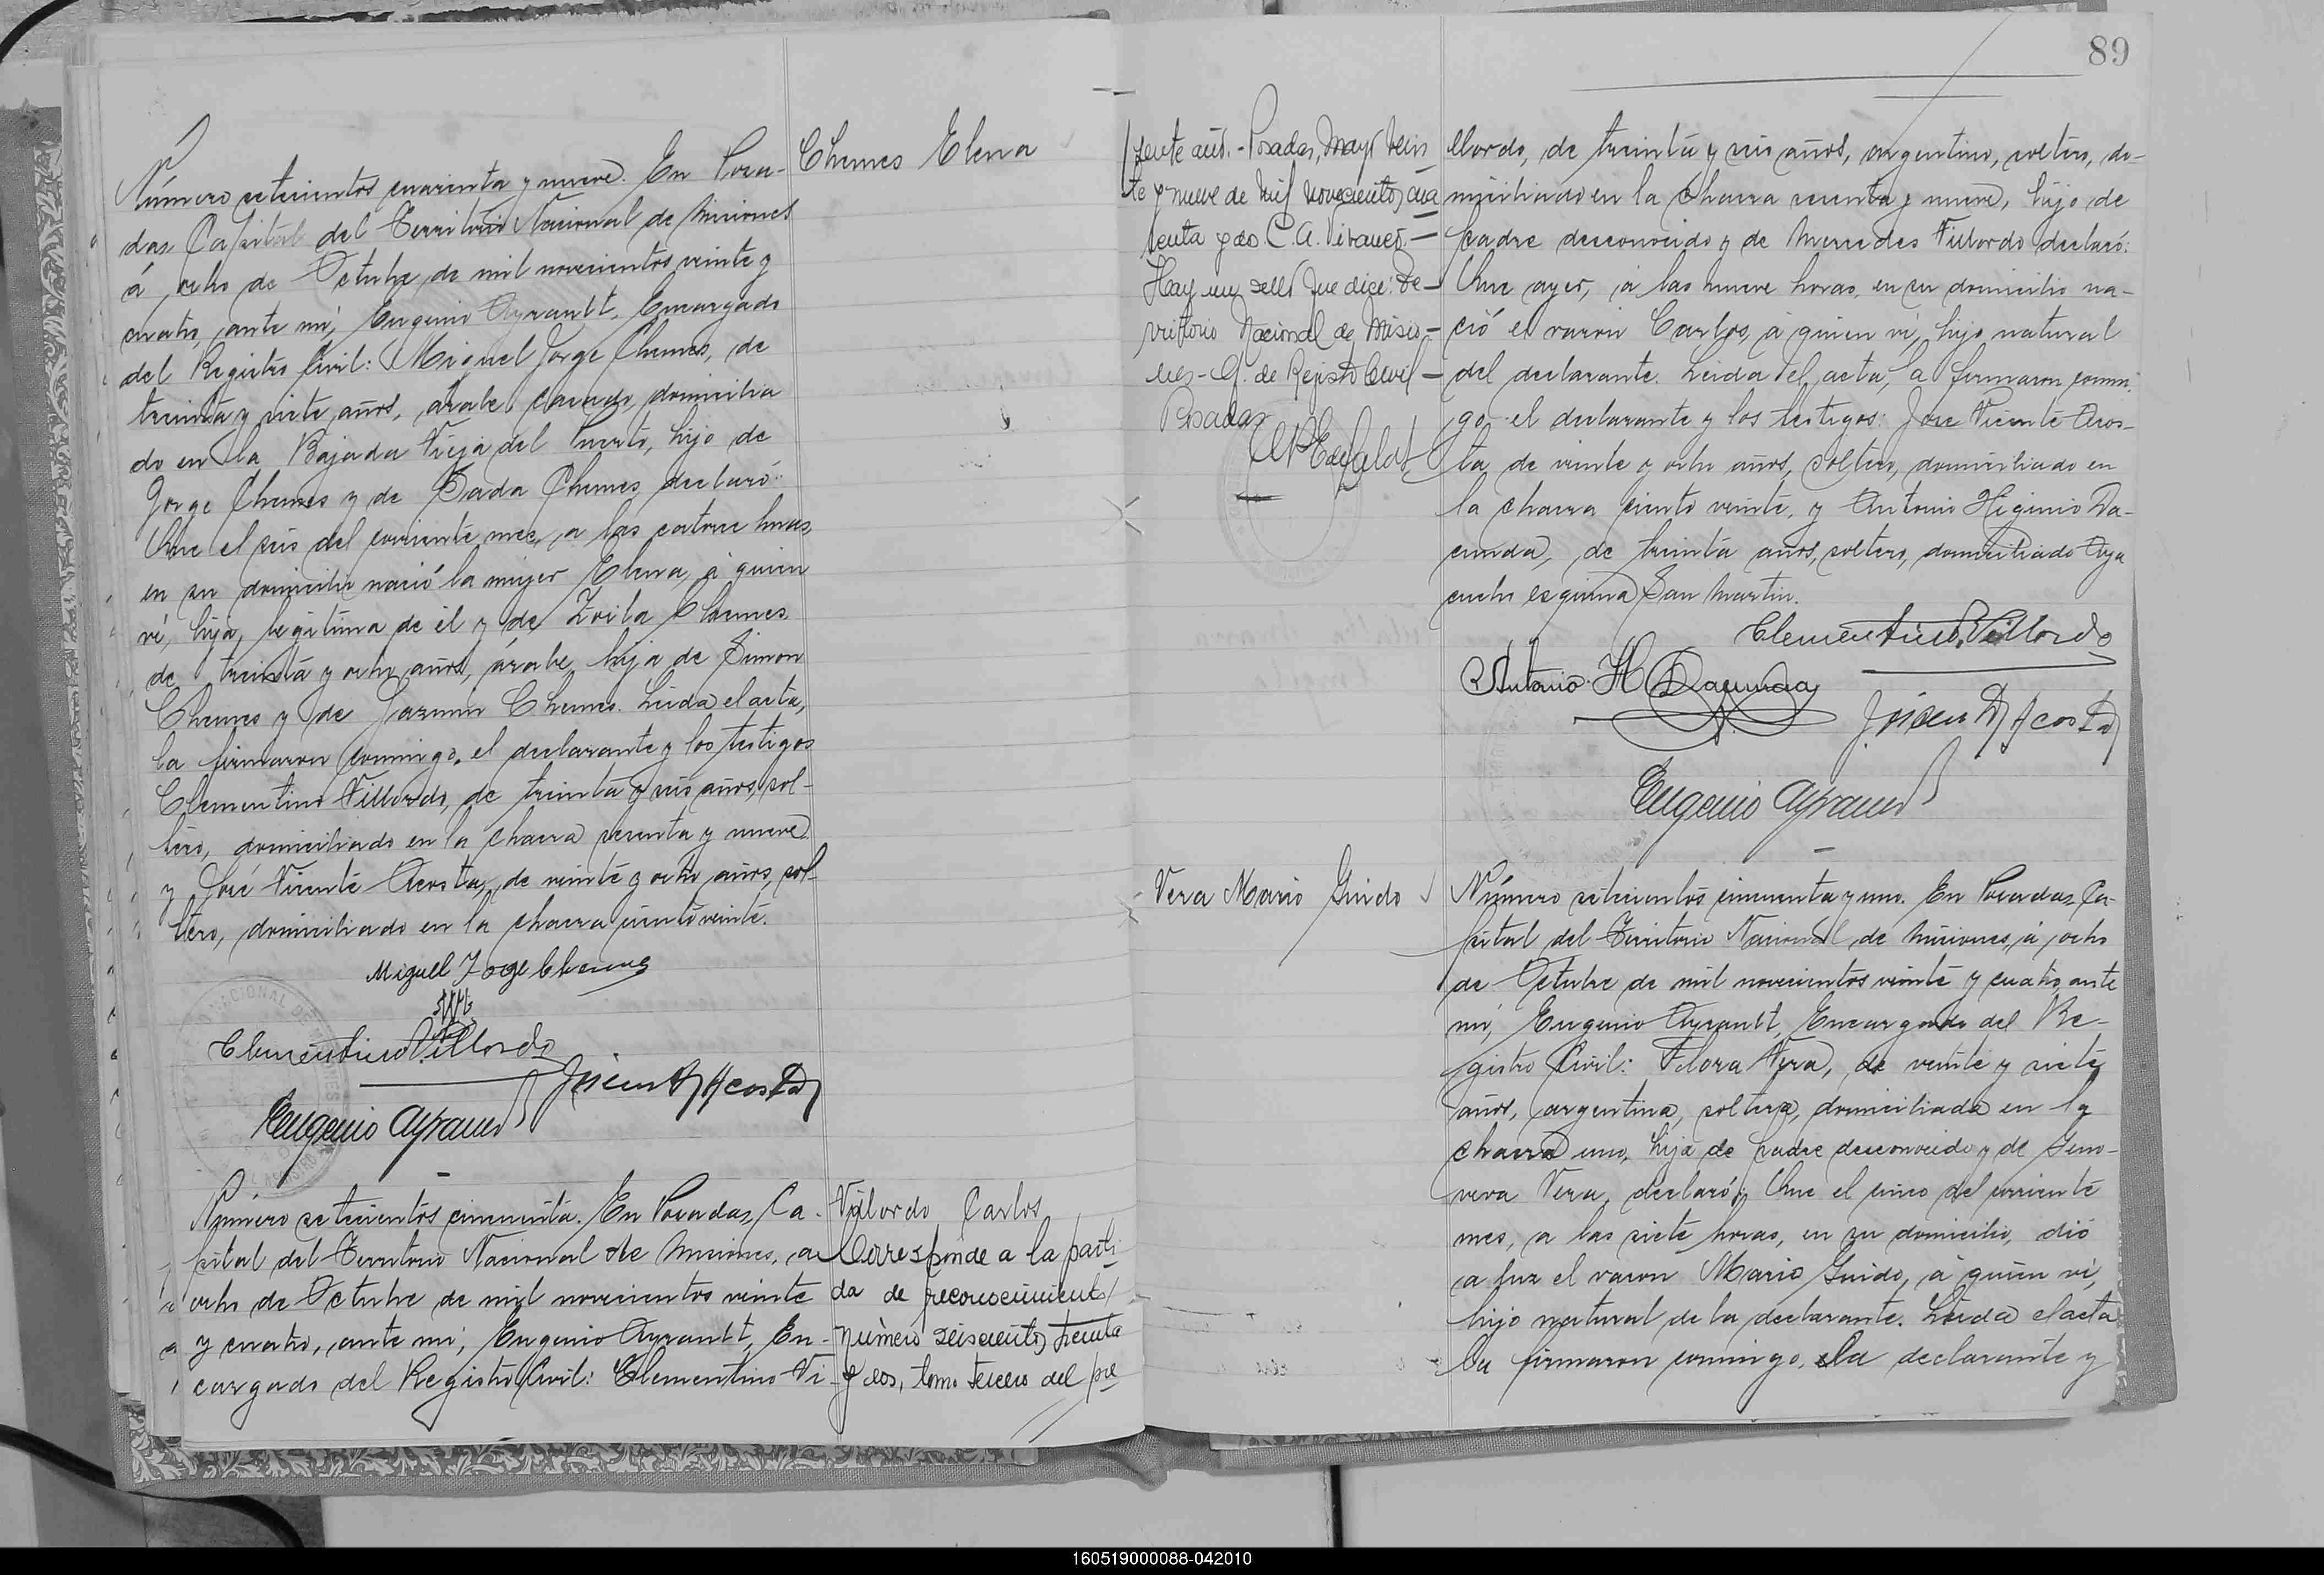 89
Número setecientos cuarenta y nueve. En Posa-
das Capital del Territorio Nacional de Misiones
á ocho de Octubre de mil novecientos veinte y
cuatro, ante mí, Eugenio Ayrault, Encargado
del Registro Civil: Miguel Jorge Chemes, de
treinta y siete años, árabe, casado, domicilia
do en la Bajada Vieja del Puerto, hijo de
Jorge Chemes y de Sada Chemes declaró:
Que el seis del corriente mes, a las catorce horas,
en su domicilio nació la mujer Elena, á quien
ví, hija legítima de él y de Zoila Chemes
de treinta y ocho años, árabe, hija de Simon
Chemes y de Jazmin Chemes. Leida el acta,
la firmaron conmigo, el declarante y los testigos
Clementino Villordo, de treinta y seis años, sol-
tero, domiciliado en la chacra sesenta y nueve
y José Vicente Acosta, de veinte y ocho años, sol-
tero, domiciliado en la chacra ciento veinte.
Chemes Elena
Miguel Jorge Chemes
Clementino Villordo
Acosta
Eugenio Ayrault
Número setecientos cincuenta. En Posadas, Ca-
pital del Territorio Nacional de Misiones, a
ocho de Octubre de mil novecientos veinte
y cuatro, ante mí, Eugenio Ayrault, En-
cargado del Registro Civil: Clementino Vi-
Villordo Carlos
Corresponde a la parti
da de reconocimiento
número seiscientos treinta
y dos, tomo tercero del pre
sente año. - Posadas, Mayo vein
te y nueve de mil novecientos cua
renta y do C. A. Vivanco. -
Hay un sello que dice: Te-
rritorio Nacional de Misio-
nes - G. de Registro Civil -
Posadas
llordo, de treinta y seis años, argentino, soltero, do-
miciliado en la chacra sesenta y nueve, hijo de
padre desconocido y de Mercedes Villordo declaró:
Que ayer, á las nueve horas, en su domicilio na-
ció el varón Carlos, á quien ví, hijo natural
del declarante. Leida el acta, la firmaron conmi
go el declarante y los testigos: José Vicente Acos-
ta de veinte y ocho años, soltero, domiciliado en
la chacra ciento veinte, y Antonio Higinio Da-
cunda, de treinta años, soltero, domiciliado Aya
cucho esquina San Martin.
Clementino Villordo
Antonio H Dacunda
Acosta
Eugenio Ayrault
Vera Mario Guido
Número setecientos cincuenta y uno. En Posadas, Ca-
pital del Territorio Nacional de Misiones, á ocho
de Octubre de mil novecientos veinte y cuatro, ante
mí, Eugenio Ayrault, Encargado del Re-
gistro Civil: Flora Vera, de veinte y siete
años, argentina, soltera, domiciliada en la
chacra uno, hija de padre desconocido y de Geno-
veva Vera, declaró: Que el cinco del corriente
mes, a las siete horas, en su domicilio, dió
a luz el varon Mario Guido, á quien ví,
hijo natural de la declarante. Leida el acta
la firmaron conmigo, la declarante y
160519000088-042010